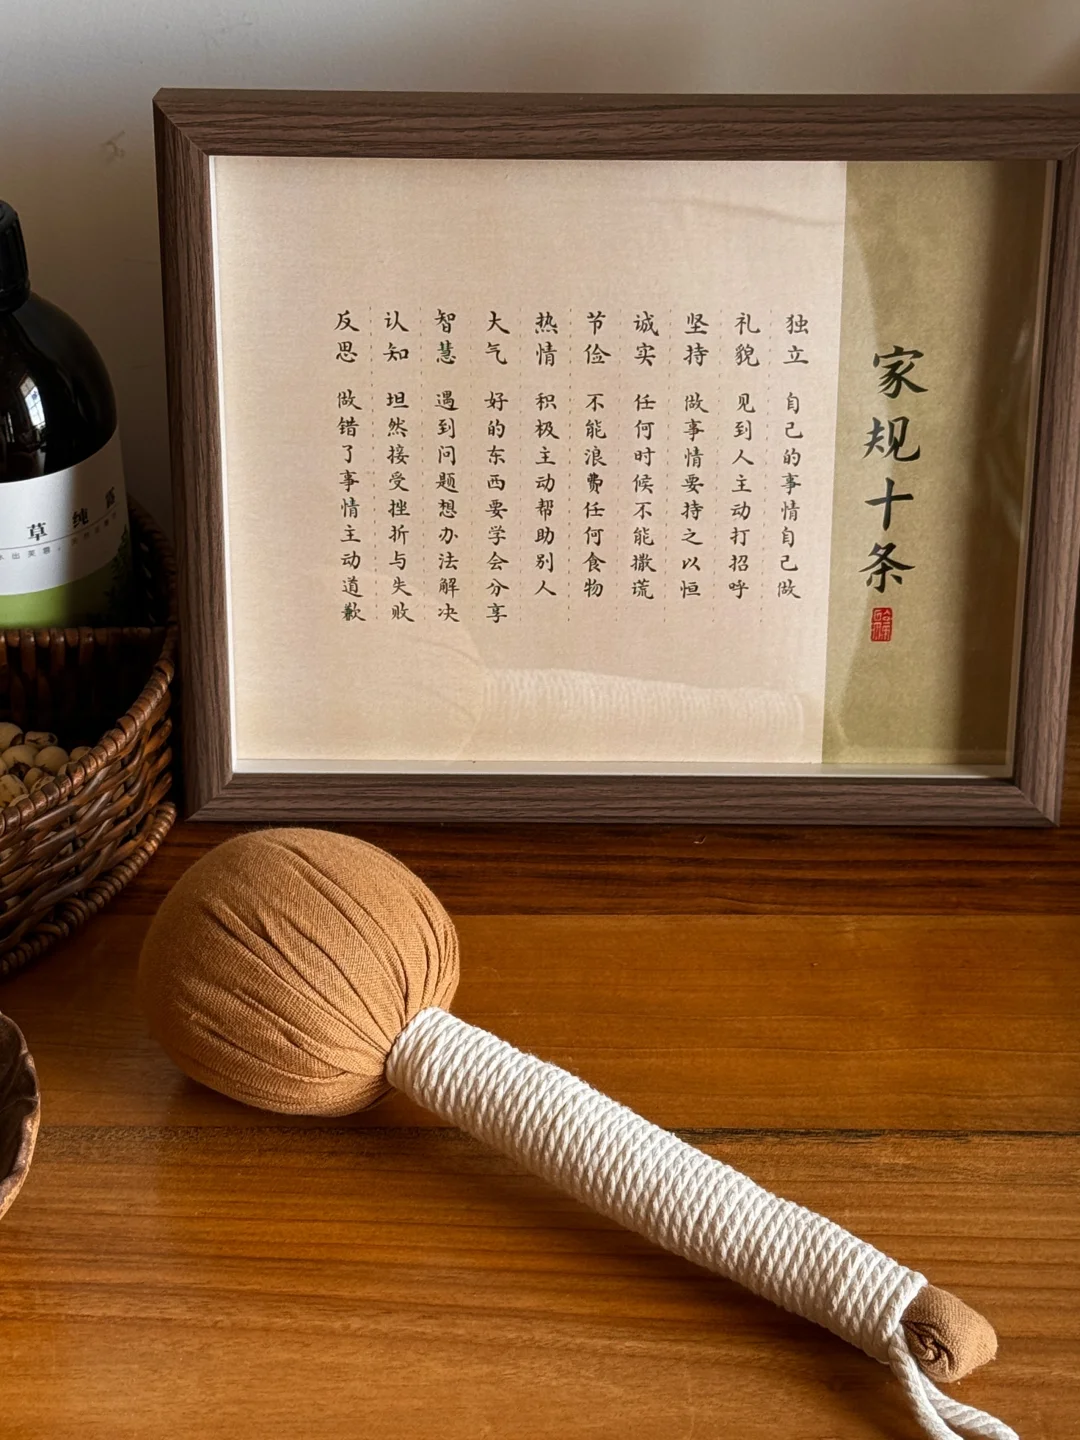 家规十条
独立 自己的事情自己做
礼貌 见到人主动打招呼
坚持 做事情要持之以恒
诚实 任何时候不能撒谎
节俭 不能浪费任何食物
热情 积极主动帮助别人
大气 好的东西要学会分享
智慧 遇到问题想办法解决
认知 坦然接受挫折与失败
反思 做错了事情主动道歉
草 纯 露